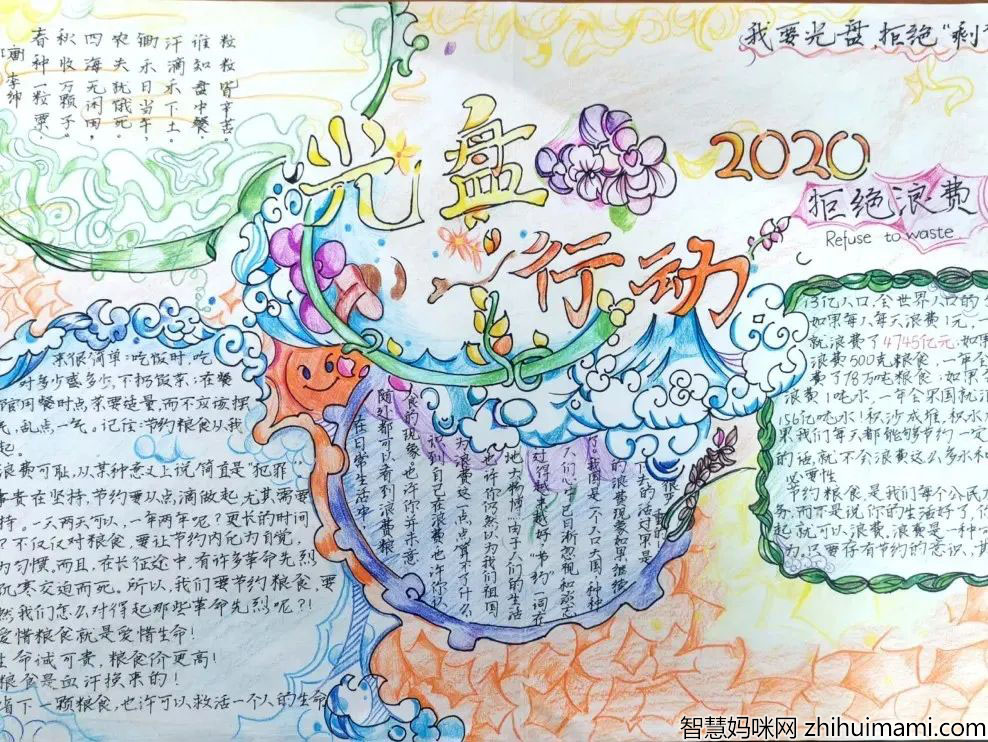 李绅
春种一粒粟,
秋收万颗子。
四海无闲田,
农夫就饿死。
锄禾日当午,
汗滴禾下土。
谁知盘中餐,
粒粒皆辛苦。
我要光盘,拒绝“剩
光盘
行动
2020
拒绝浪费
Refuse to waste
来很简单:吃饭时,吃
多少盛多少,不扔饭菜;在餐
馆用餐时点菜要适量,而不应该摆
乱点一气。记住:节约粮食从我
起。
浪费可耻,从某种意义上说,简直是“犯罪”
事贵在坚持,节约要从点滴做起,尤其需要
持。一天两天可以,一年两年呢?更长的时间
?不仅仅对粮食,要让节约内化为自觉,
为习惯,而且,在长征途中,有许多革命先烈
饥寒交迫而死。所以,我们要节约粮食,要
然我们怎么对得起那些革命先烈呢?!
爱惜粮食就是爱惜生命!
生命诚可贵,粮食价更高!
粮食是血汗换来的!
省下一颗粮食,也许可以救活一个人的生命
在日常生活中
随处都可以看到浪费粮
食的现象。也许你并未意
识到自己在浪费,也许你认
为浪费这一点点算不了什么
也许你仍然以为我们祖国
地大物博,由于人们的生活
过得越来越好,“节约”一词在
人们心中已日渐忽视和淡忘
了。我国是一个人口大国,种种
的浪费现象如果继续
下去的话
13亿人口,会世界人口的
如果每人每天浪费1元,一
就浪费了4745亿元,如果
浪费500克粮食,一年会
费了78万吨粮食;如果会
浪费1吨水,一年会果国就
156亿吨水!积沙成堆,积水
果我们每天都能够节约一定
的话,就不会浪费这么多水和
必要性
节约粮食,是我们每个公民
务,而不是说你的生活好了,你
起就可以浪费,浪费是一种
为,只要存有节约的意识,其
智慧妈咪网 zhihuimami.com